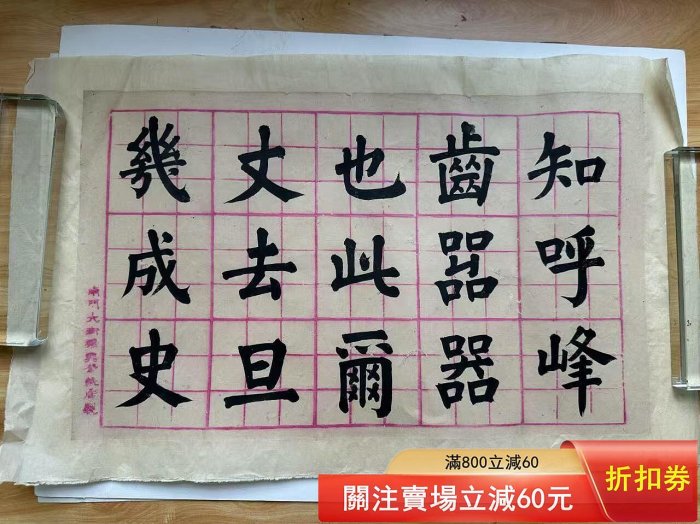 知呼峰
齒器
也此爾
丈去旦
幾成史
滿800立減60
關注賣場立減60元
折扣券